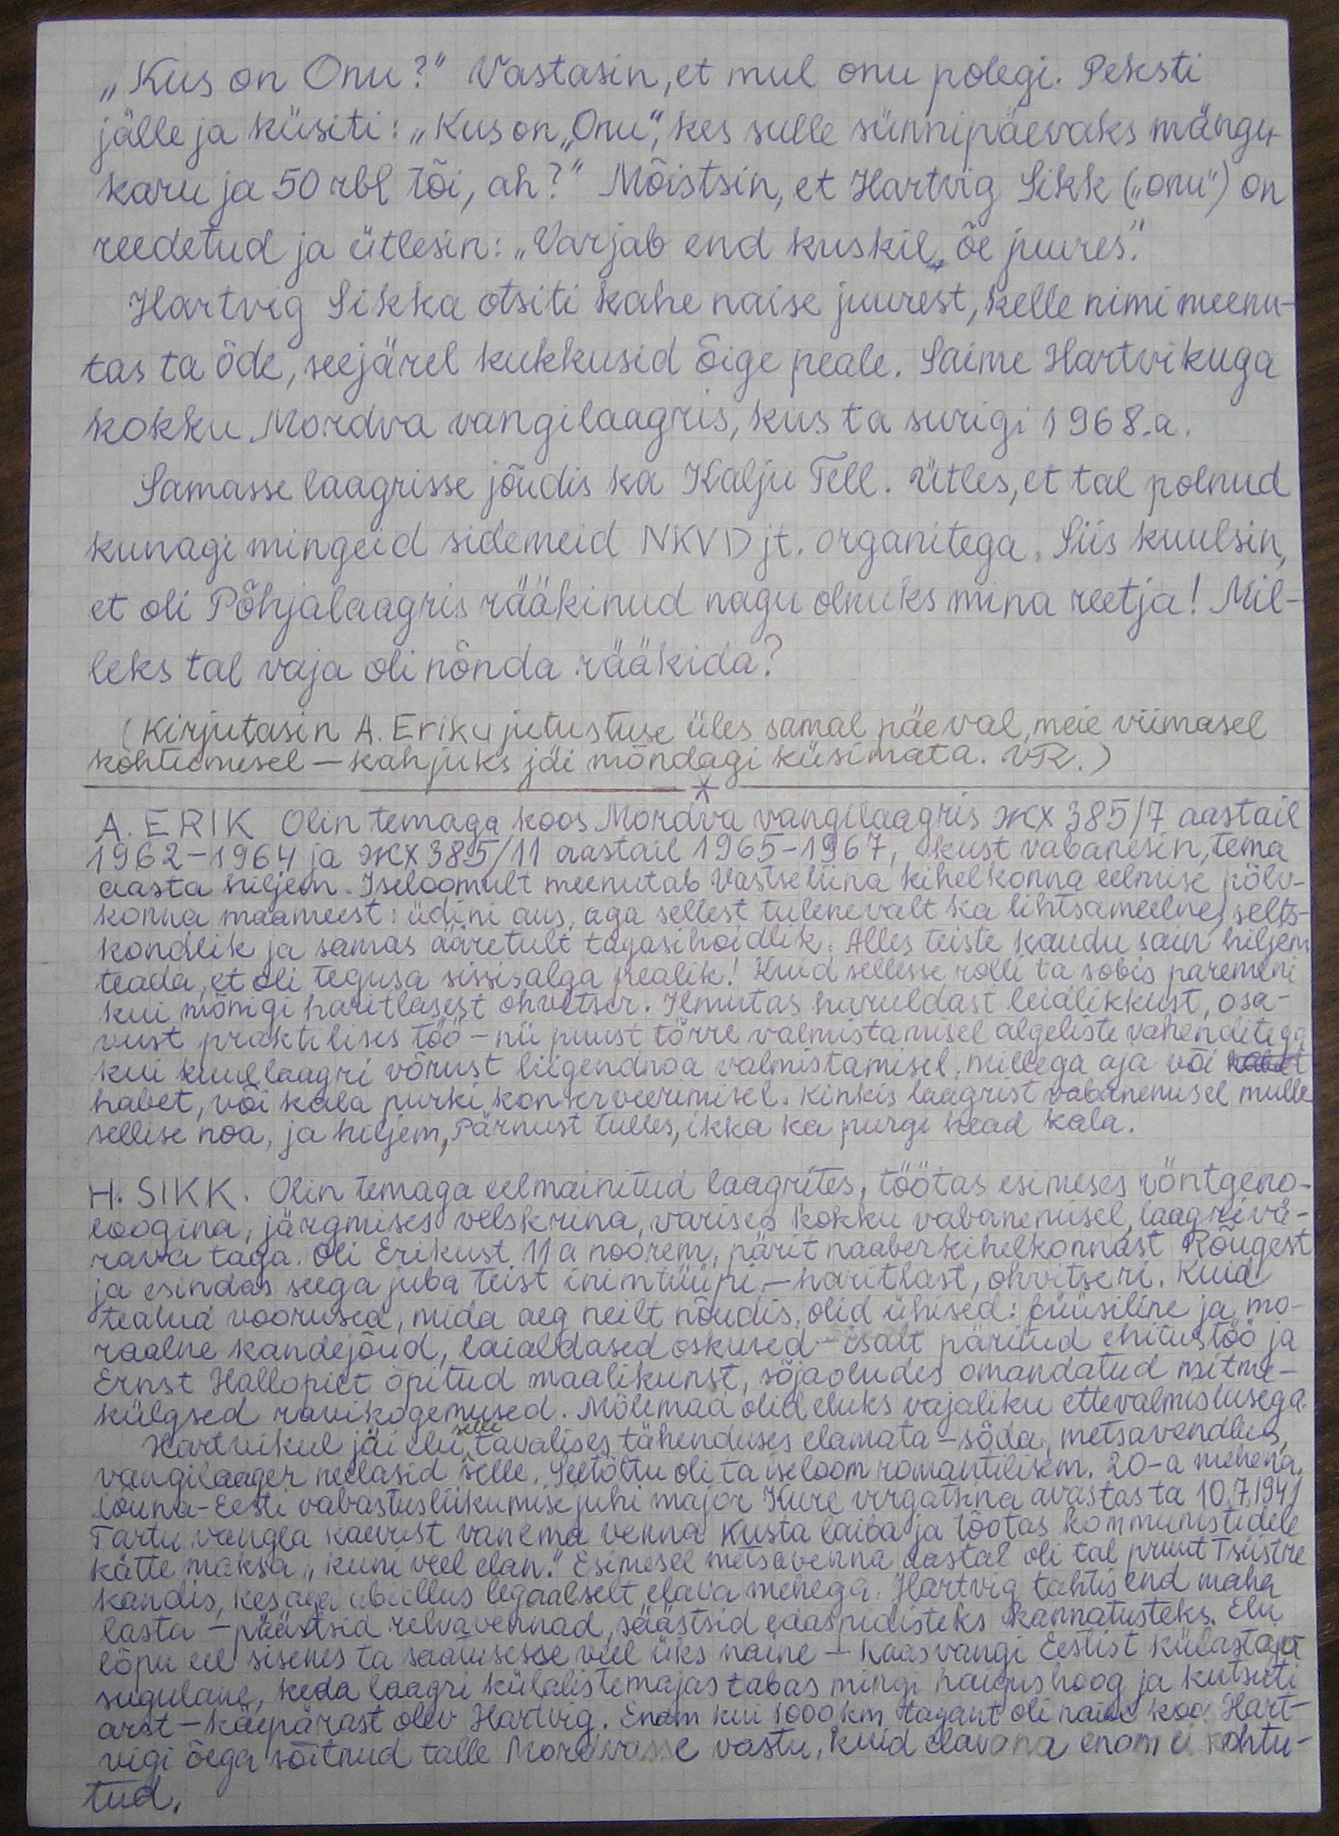 „Kus on Onu?" Vastasin, et mul onu polegi. Peksti
jälle ja küsiti: „Kus on „Onu", kes sulle sünnipäevaks mängu-
karu ja 50 rbl tõi, ah?" Mõistsin, et Hartvig Sikk („onu") on
reedetud ja ütlesin: „Varjab end kuskil õe juures".
Hartvig Sikka otsiti kahe naise juurest, kelle nimi meenu-
tas ta õde, seejärel kukkusid õige peale. Saime Hartvikuga
kokku Mordva vangilaagris, kus ta surigi 1968.a.
Samasse laagrisse jõudis ka Kalju Tell. Ütles, et tal polnud
kunagi mingeid sidemeid NKVD jt. organitega. Siis kuulsin,
et oli Põhjalaagris rääkinud nagu olnuks mina reetja! Mil-
leks tal vaja oli nõnda rääkida?
(Kirjutasin A. Eriku jutustuse üles samal päeval, meie viimasel
kohtumisel – kahjuks jäi mõndagi küsimata. VR.)
*
A. ERIK Olin temaga koos Mordva vangilaagris ЖХ 385/7 aastail
1962–1964 ja ЖХ 385/11 aastail 1965–1967, kust vabanesin, tema
aasta hiljem. Iseloomult meenutab Vastseliina kihelkonna eelmise põlv-
konna maameest: üdini aus, aga sellest tulenevalt ka lihtsameelne, selts-
kondlik ja samas ääretult tagasihoidlik. Alles teiste kaudu sain hiljem
teada, et oli tegusa sissisalga pealik! Kuid sellesse rolli ta sobis paremini
kui mõnigi haritlasest ohvitser. Ilmutas haruldast leidlikkust, osa-
vust praktilises töö – nii puust tõrre valmistamisel algeliste vahenditega
kui kuullaagri võrust liigendnoa valmistamisel, millega aja või
habet, või kala purki konserveerimisel. Kinkis laagrist vabanenusel mulle
sellise noa, ja hiljem, Pärnust tulles, ikka ka purgi head kala.
H. SIKK. Olin temaga eelmainitud laagrites, töötas esimeses röntgeno-
loogina, järgmises velskrina, varises kokku vabanenusel, laagrivä-
rava taga. Oli Erikust 11 a noorem, pärit naaberkihelkonnast Rõugest
ja esindas seega juba teist inimtüüpi – haritlast, ohvitseri. Kuid
teatud voorused, mida aeg neilt nõudis, olid ühised: füüsiline ja mo-
raalne kandejõud, laialdased oskused – isalt päritud ehitustöö ja
Ernst Hallopilt õpitud maalikunst, sõjaoludes omandatud mitme-
külgsed ravikogemused. Mõlemad olid eluks vajaliku ettevalmistusega.
Hartvikul jäi elu selle tavalises tähenduses elamata – sõda, metsavendlus,
vangilaager neelasid selle. Seetõttu oli ta iseloom romantilisem. 20-a mehena,
Lõuna-Eesti vabastusliikumise juhi major Kure virgatsina avastas ta 10.7.1941
Tartu vangla kaevust vanema venna Kusta laiba ja tõotas kommunistidele
kätte maksa „kuni veel elan." Esimesel metsavenna aastal oli tal pruut Tsiistre
kandis, kes aga abiellus legaalselt elava mehega. Hartvig tahtis end maha
lasta – päästsid relvavennad, säästsid edaspidisteks kannatusteks. Elu
lõpu eel sisenes ta saatusesse veel üks naine – kaasvangi Eestist külastajast
sugulane, keda laagri külalistemajas tabas mingi haigushoog ja kutsuti
arst – käepärast olev Hartvig. Enam kui 1000 km tagant oli naine koos Hart-
vigi õega sõitnud talle Mordvasse vastu, kuid elavana enam ei kohtu-
tud.